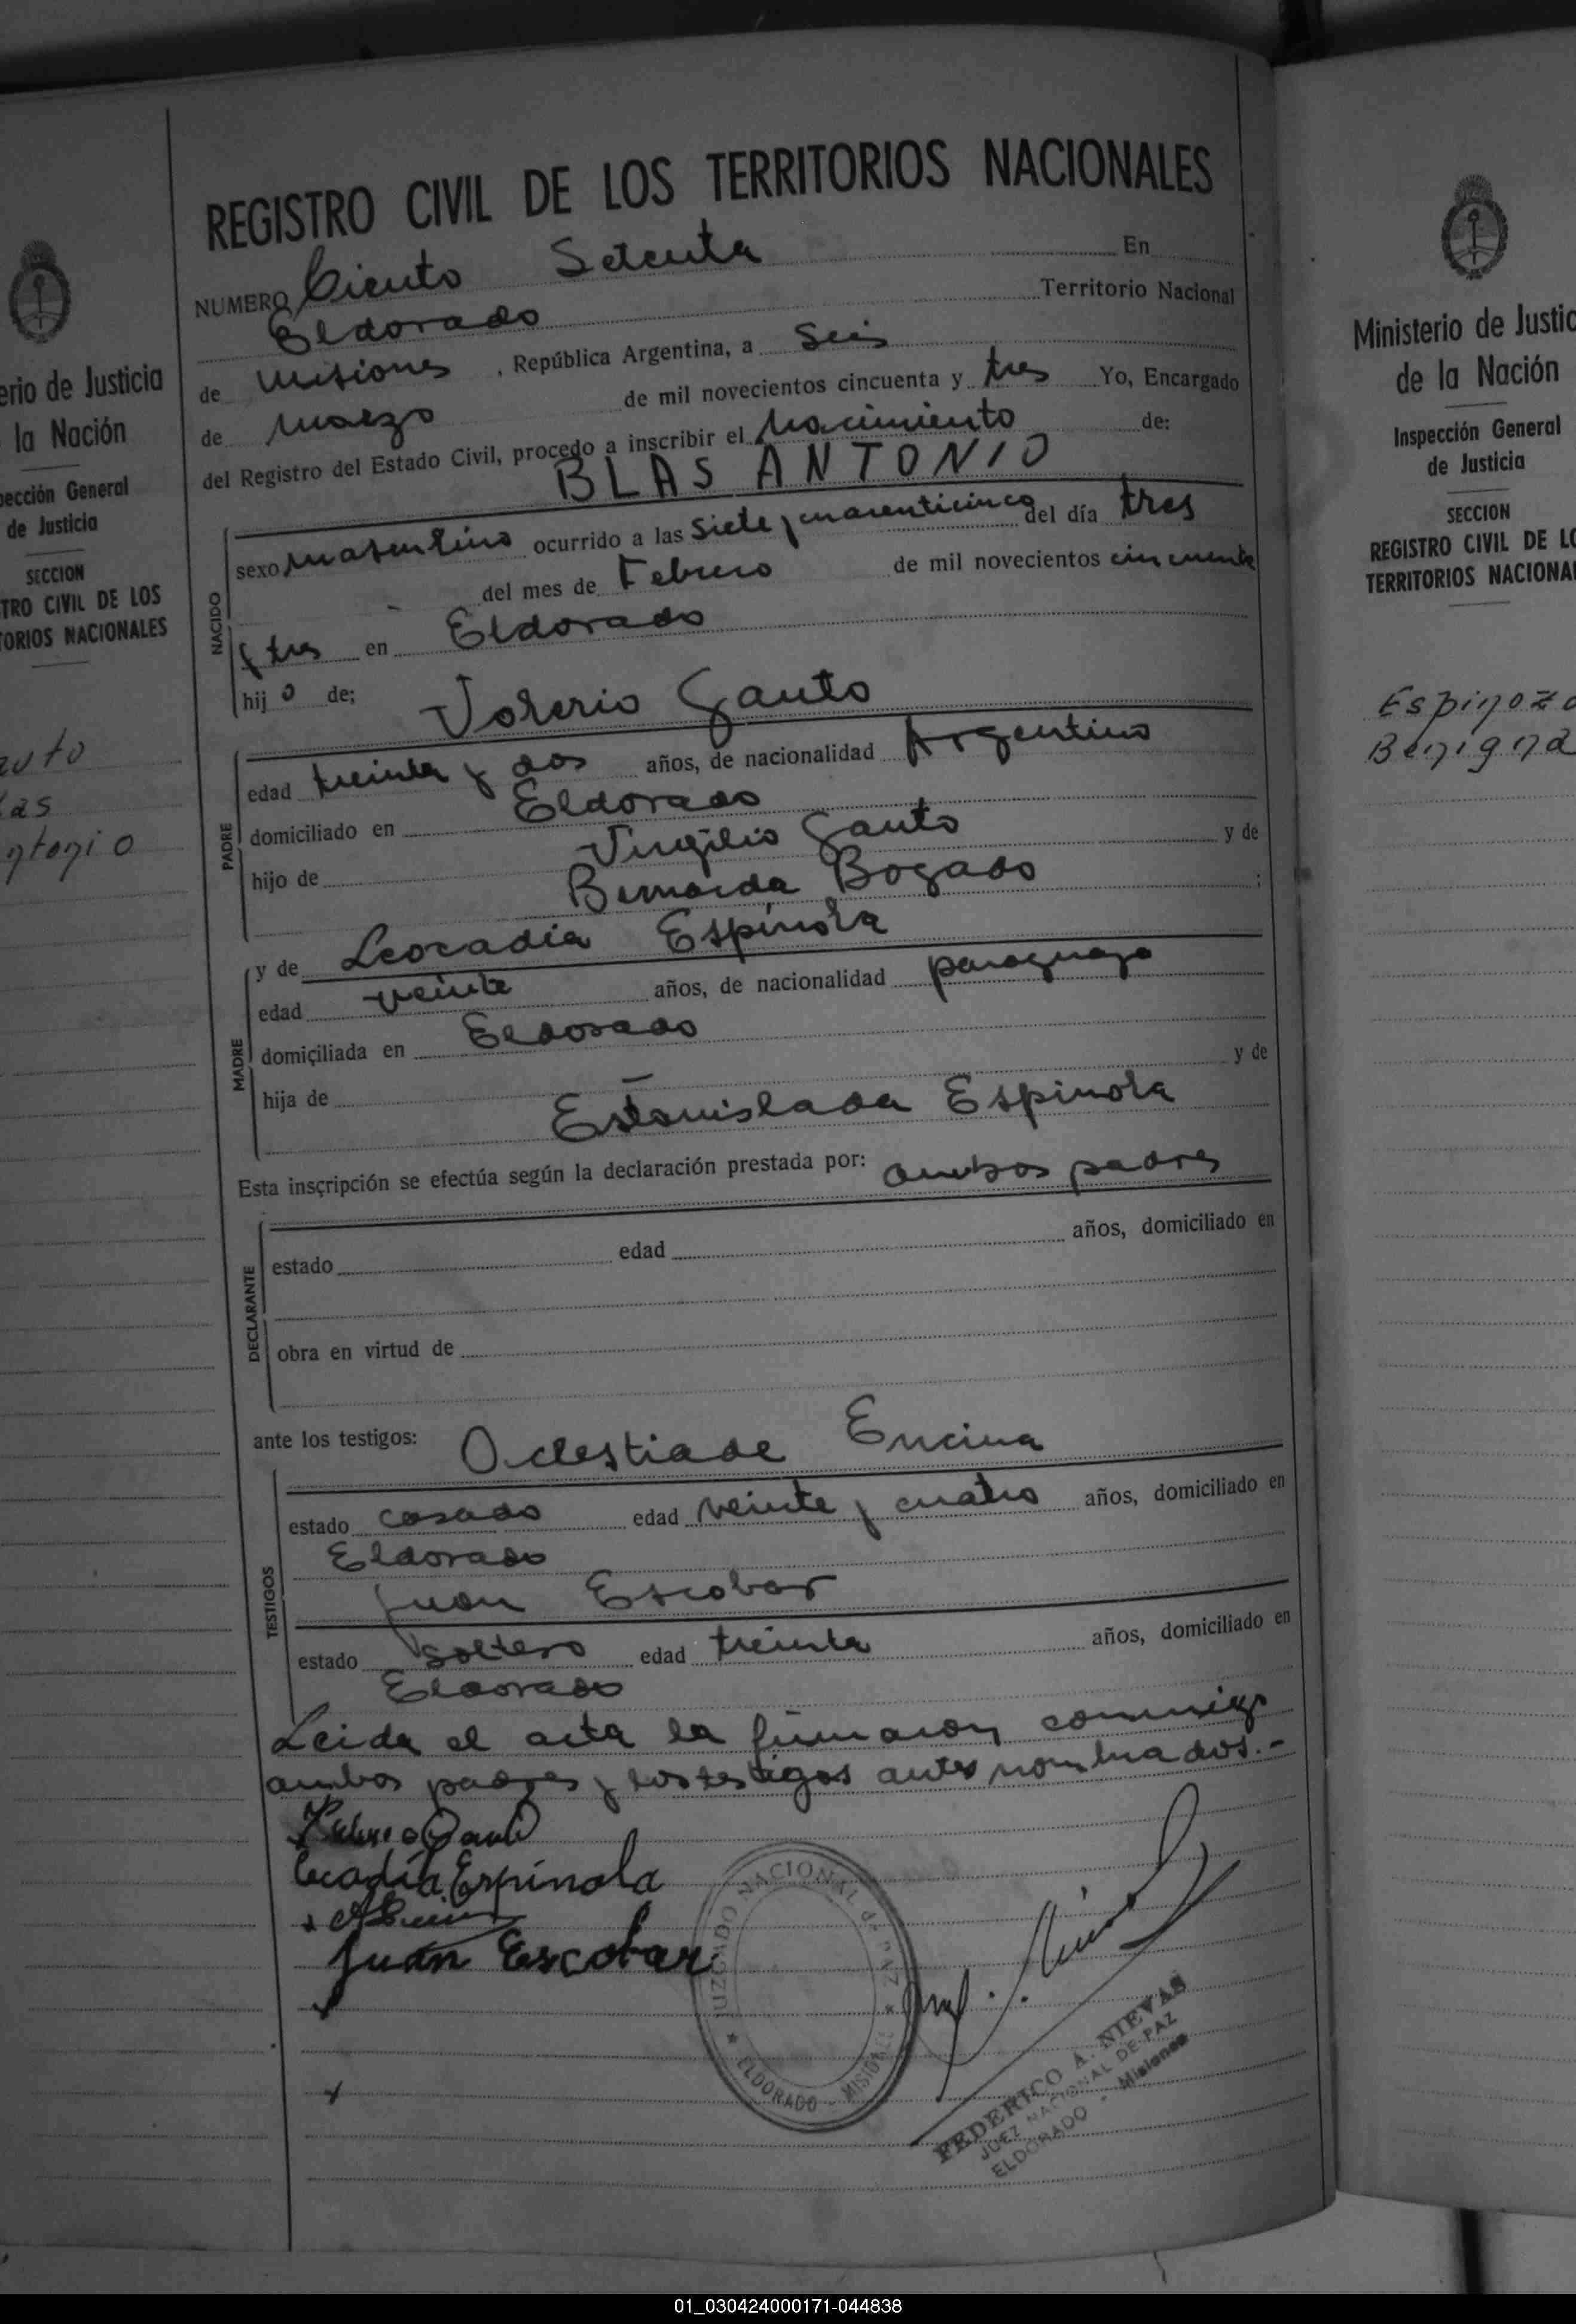 erio de Justicia
la Nación
pección General
de Justicia
SECCION
TRO CIVIL DE LOS
TORIOS NACIONALES
auto
las
ntonio
REGISTRO CIVIL DE LOS TERRITORIOS NACIONALES
NUMERO Ciento Setenta En
Eldorado Territorio Nacional
de Misiones, República Argentina, a Seis
de marzo de mil novecientos cincuenta y tres Yo, Encargado
del Registro del Estado Civil, procedo a inscribir el Nacimiento de:
BLAS ANTONIO
NACIDO
sexo masculino ocurrido a las siete y cuarenticinco del día tres
del mes de Febrero de mil novecientos cincuenta
y tres en Eldorado
hijo de; Valerio Gauto
PADRE
edad treinta y dos años, de nacionalidad Argentino
domiciliado en Eldorado
hijo de Virgilio Gauto y de
Bernarda Bogado ;
MADRE
y de Leocadia Espínola
edad veinte años, de nacionalidad paraguaya
domiciliada en Eldorado
hija de — y de
Estanislada Espinola
Esta inscripción se efectúa según la declaración prestada por: ambos padres
DECLARANTE
estado edad años, domiciliado en
obra en virtud de
ante los testigos: Oclestiade Encina
TESTIGOS
estado casado edad veinte y cuatro años, domiciliado en
Eldorado
Juan Escobar
estado soltero edad treinta años, domiciliado en
Eldorado
Leida el acta la firmaron conmigo
ambos padres y los testigos antes nombrados.-
Leocadia Espínola
Juan Escobar
JUZGADO NACIONAL de PAZ
ELDORADO - MISIONES
FEDERICO A. NIEVAS
JUEZ NACIONAL DE PAZ
ELDORADO - Misiones
Ministerio de Justic
de la Nación
Inspección General
de Justicia
SECCION
REGISTRO CIVIL DE LO
TERRITORIOS NACIONA
Espinoza
Benigna
01_030424000171-044838